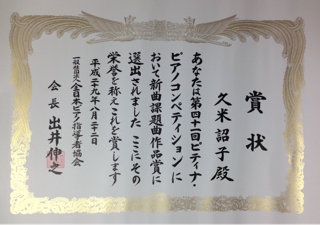 賞状
久米詔子殿
あなたは第四十一回ピティナ・
ピアノコンペティションに
おいて新曲課題曲作品賞に
選出されました ここにその
栄誉を称えこれを賞します
平成二十九年八月二十二日
一般社団法人全日本ピアノ指導者協会
会長 出井伸之